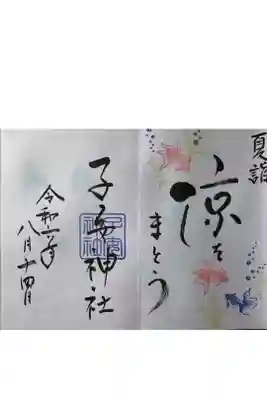 夏詣
涼を
まとう
子安神社
令和六年
八月十四日